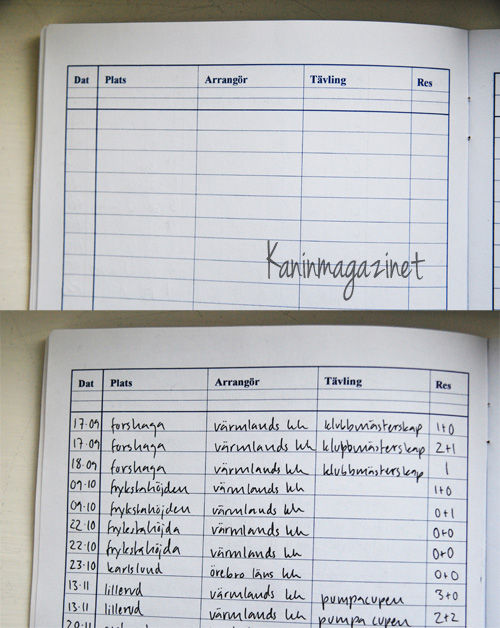 Dat Plats Arrangör Tävling Res
Kaninmagazinet
Dat Plats Arrangör Tävling Res
17.09 forshaga värmlands kh klubbmästerskap 1+0
17.09 forshaga värmlands kh klubbmästerskap 2+1
18.09 forshaga värmlands kh klubbmästerskap 1
09.10 frykstahöjden värmlands kh 1+0
09.10 frykstahöjden värmlands kh 0+1
22.10 frykstahöjda värmlands kh 0+0
22.10 frykstahöjda värmlands kh 0+0
23.10 karlslund örebro läns kh 0+0
13.11 lillerud värmlands kh pumpacupen 3+0
13.11 lillerud värmlands kh pumpacupen 2+2
20.11